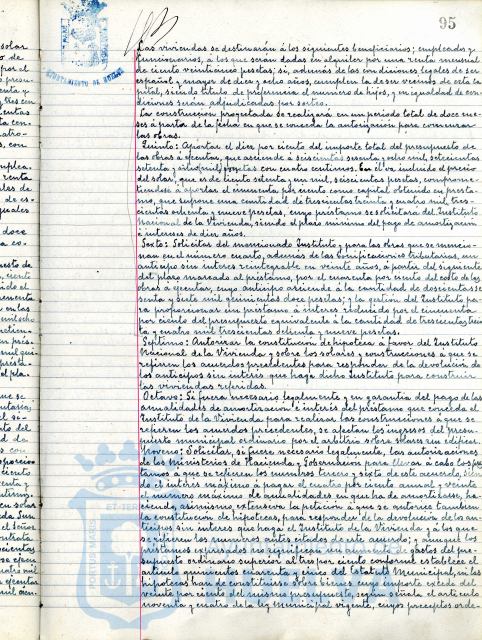 95
AYUNTAMIENTO DE HUELVA
Las viviendas se destinarán á los siguientes beneficiarios; empleados y
funcionarios, a los que serán dadas en alquiler por una renta mensual
de ciento veinticinco pesetas; si, además de las condiciones legales de ser
español y mayor de diez y ocho años, cumplen la de ser vecinos de esta ca-
pital, siendo título de preferencia el número de hijos, y en igualdad de con-
diciones serán adjudicadas por sorteo.
La construcción proyectada se realizará en un periodo total de doce me-
ses á partir de la fecha en que se conceda la autorización para comenzar
las obras.
Quinto: Aportar el diez por ciento del importe total del presupuesto de
las obras á ejecutar, que asciende á seiscientas sesenta y ocho mil, setecientas
setenta y pesetas con cuatro céntimos. En él va incluido el precio
del solar, que es de ciento sesenta y un mil, seiscientas pesetas, comprome-
tiéndose á aportar el cincuenta por ciento como capital obtenido en présta-
mo, que supone una cantidad de trescientas treinta y cuatro mil, tres-
cientas ochenta y nueve pesetas, cuyo préstamo se solicitará del Instituto
Nacional de la Vivienda, siendo el plazo mínimo del pago de amortización
é intereses de diez años.
Sexto: Solicitar del mencionado Instituto y para las obras que se mencio-
nan en el número cuarto, además de las bonificaciones tributarias, un
anticipo sin interés reintegrable en veinte años, á partir del siguiente
del plazo marcado al préstamo, por el cuarenta por ciento del costo de las
obras á ejecutar, cuyo anticipo asciende á la cantidad de doscientas se-
senta y siete mil quinientas doce pesetas; y la gestión del Instituto pa-
ra proporcionar un préstamo á interés reducido por el cincuenta
por ciento del presupuesto equivalente á la cantidad de trescientas trein-
ta y cuatro mil trescientas ochenta y nueve pesetas.
Séptimo: Autorizar la constitución de hipoteca á favor del Instituto
Nacional de la Vivienda y sobre los solares y construcciones á que se
refieren los acuerdos precedentes para responder de la devolución de
los anticipos sin interés que haga dicho Instituto para construir
las viviendas referidas.
Octavo: Si fuera necesario legalmente y en garantía del pago de las
anualidades de amortización é interés del préstamo que conceda el
Instituto de la Vivienda para realizar las construcciones á que se
refieren los acuerdos precedentes, se afectan los ingresos del presu-
puesto municipal ordinario por el arbitrio sobre solares sin edificar.
Noveno: Solicitar, si fuese necesario legalmente, las autorizaciones
de los ministerios de Hacienda y Gobernación para llevar á cabo los prés-
tamos á que se refieren los números tercero y sexto de este acuerdo, sien-
do el interés máximo á pagar el cuatro por ciento anual y veinte
el número máximo de anualidades en que ha de amortizarse, ha-
ciendo, asimismo extensiva la petición á que se autorice también
la constitución de hipotecas, para responder de la devolución de los an-
ticipos sin interés que haga el Instituto de la Vivienda y á los que
se refieren los números antes citados de este acuerdo; y aunque los
préstamos expresados no significan un aumento de gastos del pre-
supuesto ordinario superior al tres por ciento conforme establece el
artículo quinientos cuarenta y cinco del Estatuto Municipal, ni las
hipotecas han de constituirse sobre bienes cuyo importe exceda del
veinte por ciento del mismo presupuesto, según señala el artículo
noventa y cuatro de la ley municipal vigente, cuyos preceptos orde-